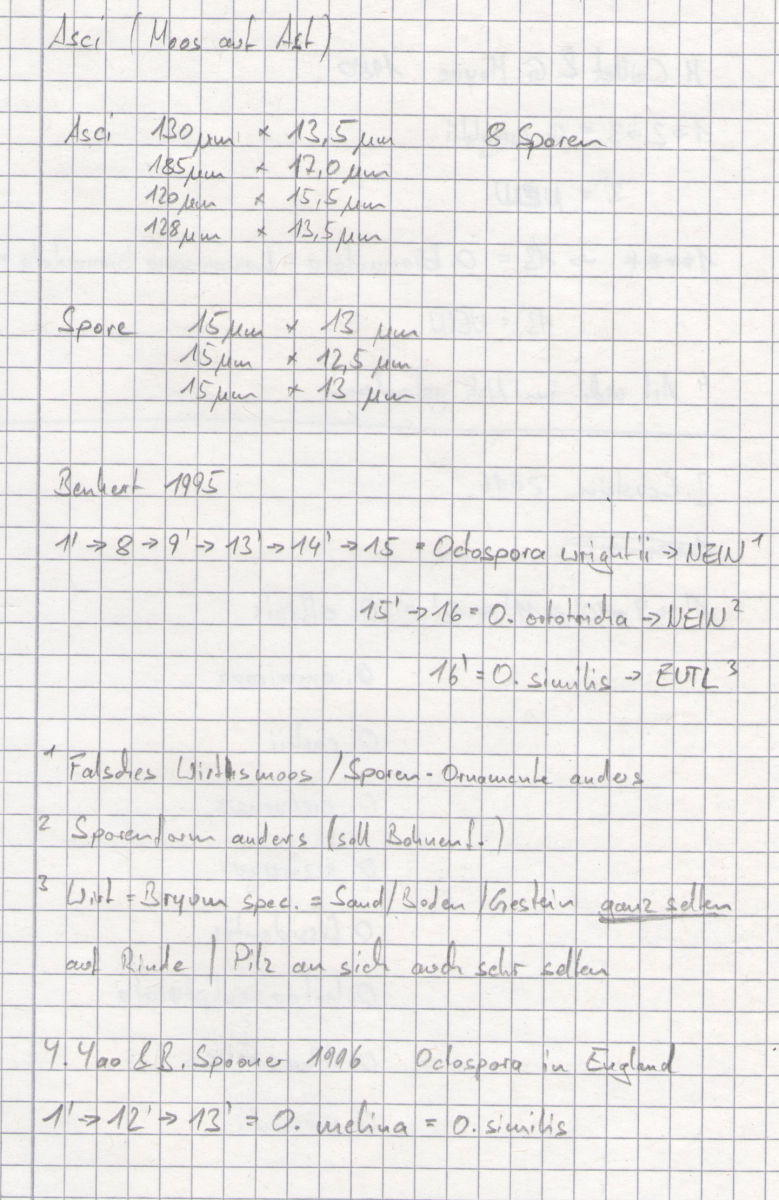 Asci (Moos auf Ast)
Asci 130µm × 13,5µm 8 Sporen
185µm × 17,0µm
120µm × 15,5µm
128µm × 13,5µm
Spore 15µm × 13 µm
15µm × 12,5µm
15µm × 13 µm
Benkert 1995
1' → 8 → 9' → 13' → 14' → 15 = Octospora wrightii → NEIN¹
15' → 16 = O. ortotricha → NEIN²
16' = O. similis → EVTL³
¹ Falsches Wirtsmoos / Sporen-Ornamente anders
² Sporenform anders (soll Bohnenf.)
³ Wirt = Bryum spec. = Sand/Boden/Gestein ganz selten
auf Rinde / Pilz an sich auch sehr selten
Y. Yao & B. Spooner 1996 Octospora in England
1' → 12' → 13' = O. melina = O. similis